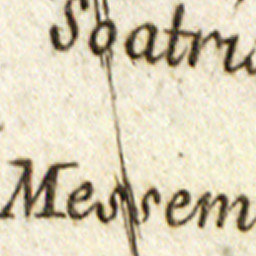 Soatru
Messem